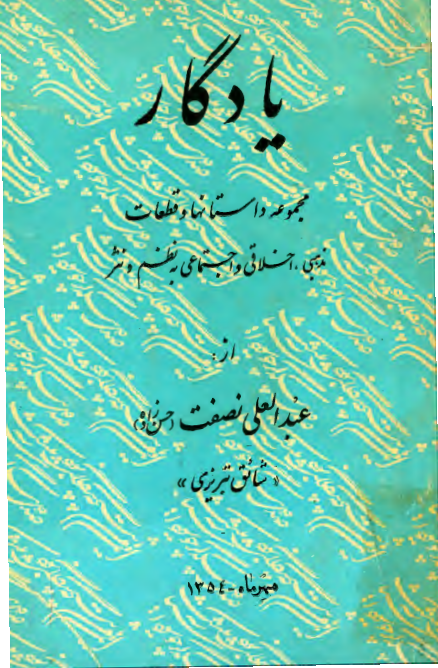 یادگار
مجموعه داستانها و قطعات
مذهبی، اخلاقی و اجتماعی به نظم و نثر
از:
عبدالعلی نصفت (حسن‌زاده)
«شائق تبریزی»
مهرماه - ۱۳۵۴